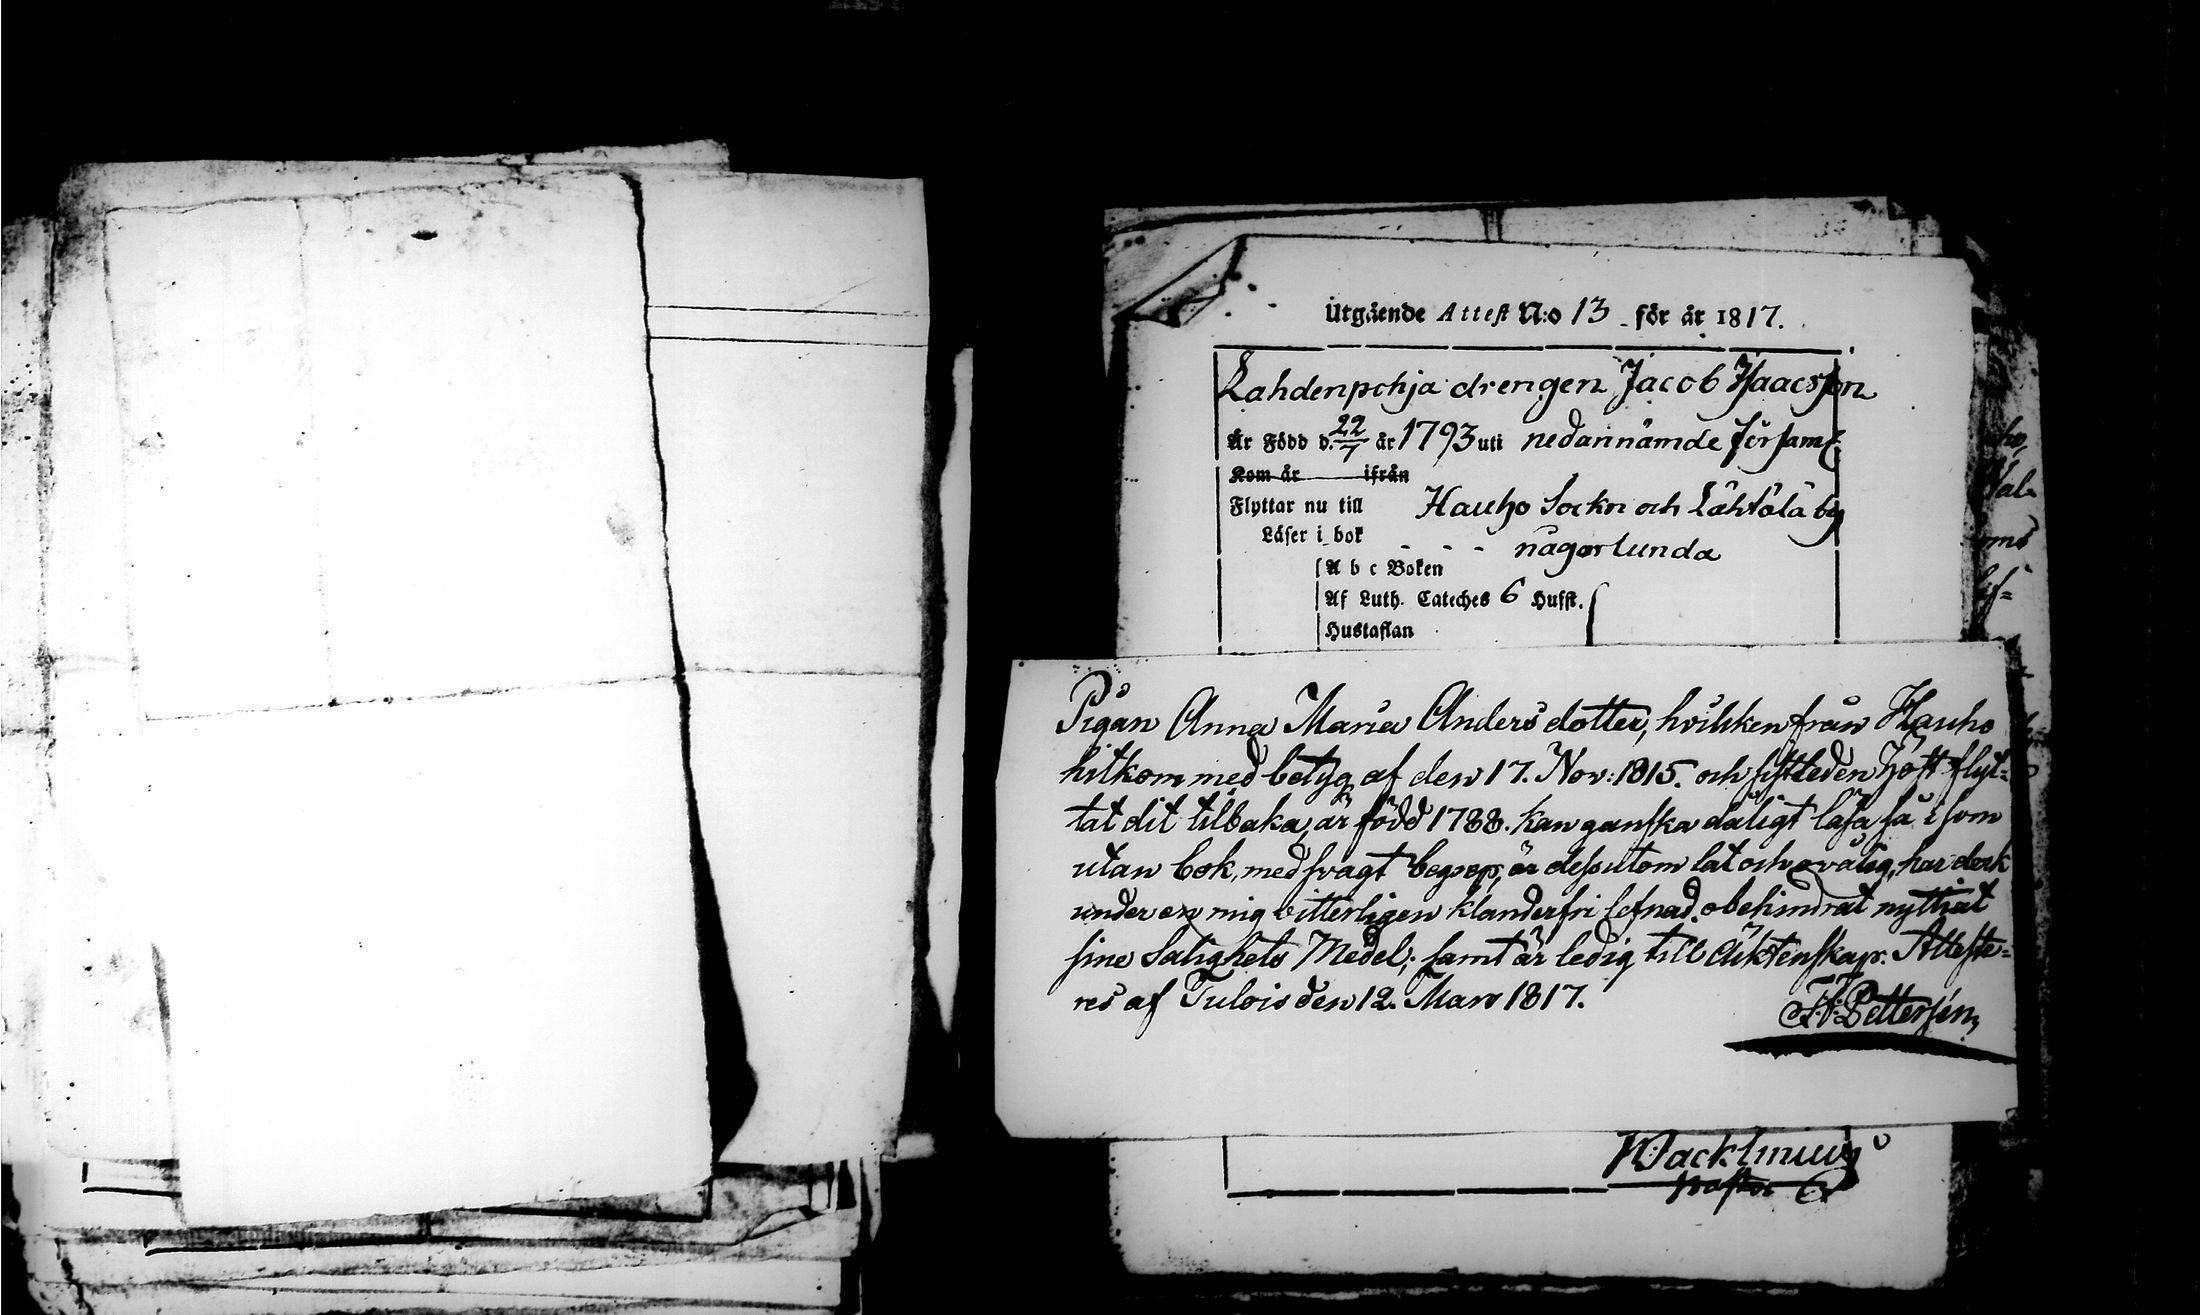 Utgående Attest N:o 13 för år 1817.
Lahdenpohja drengen Jacob Isaacsson
Är Född d. 22/7 år 1793 uti nedannämde församl:
Kom år ifrån
Flyttar nu till Hauho Sockn och Lähtälä by
Läser i bok - - - någorlunda
A b c Boken
Af Luth. Cateches 6 Hufst.
Hustaflan
Pigan Anna Maria Anders dotter, hvilken från Hauho
hitkom med betyg af den 17. Nov: 1815. och sistleden Höst flyt=
tat dit tilbaka, är född 1788. kan ganska dåligt läsa så i som
utan bok, med svagt begrep, är dessutom lat och ovälig, har dock
under en mig vitterligen klanderfri lefnad obehindrat nyttjat
sine Salighets Medel; samt är ledig till Äktenskap. Atteste=
res af Tulois den 12. Mars 1817.
Pettersén
Wacklin
Pastor